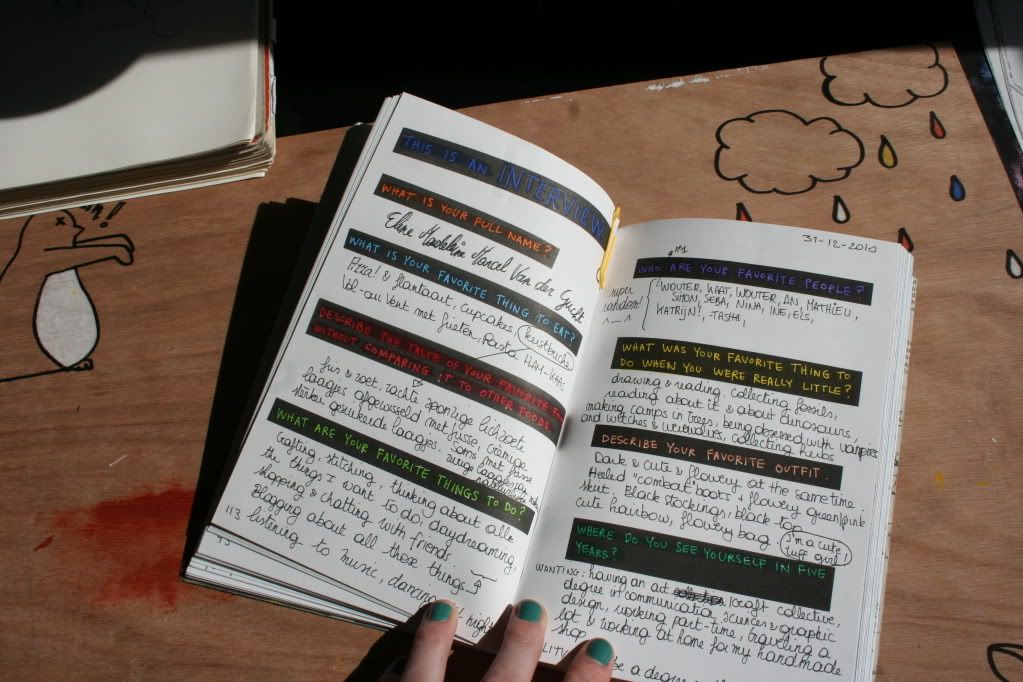 THIS IS AN INTERVIEW
WHAT IS YOUR FULL NAME?
Eline Madeleine Marcel Van der Gucht
WHAT IS YOUR FAVORITE THING TO EAT?
Pizza! & Plantaart, cupcakes,
Vol-au Vent met frieten, Pasta HAH-KAAS
DESCRIBE THE TASTE OF YOUR FAVORITE
WITHOUT COMPARING IT TO OTHER FOODS.
fris & zoet, zachte sponzige lichzoet
laagjes afgewisseld met frisse, romige
sterker gesuikerde laagjes. Soms met frisse
WHAT ARE YOUR FAVORITE THINGS TO DO?
Crafting, stitching, thinking about alle
the things I want to do, daydreaming,
shopping & chatting with friends
Blogging about all those things.
113 listening to music, dancing
31-12-2010
n°1
WHO ARE YOUR FAVORITE PEOPLE?
super random!
WOUTER, KAAT, WOUTER, AN, MATHIEU,
SIMON, SEBA, NINA, INE, ELS,
KATRIJN!, TASHI,
^_^
WHAT WAS YOUR FAVORITE THING TO
DO WHEN YOU WERE REALLY LITTLE?
drawing & reading, collecting fossils,
reading about it & about dinosaurs,
making camps in trees, being obsessed with vampires
and witches & werewolves, collecting herbs
DESCRIBE YOUR FAVORITE OUTFIT.
Dark & cute & flowery at the same time.
Heeled "combat" boots + flowery green/pink
skirt. black stockings, black top
cute hairbow, flowery bag I'm a cute
tuff girl
WHERE DO YOU SEE YOURSELF IN FIVE
YEARS?
WANTING: having an art /craft collective,
degree in communication sciences & graphic
design, working part-time, traveling a
lot & working at home for my handmade
shop